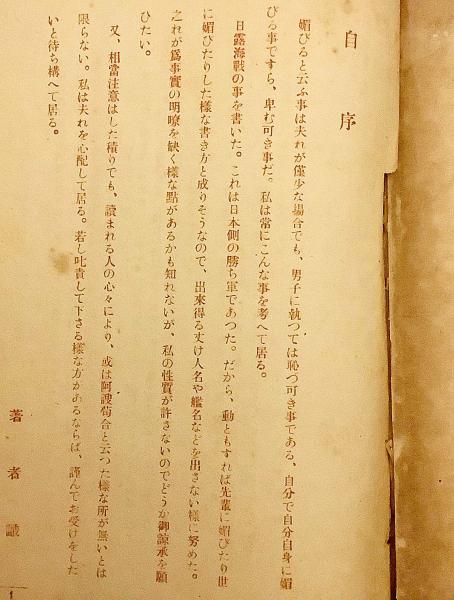 自序
媚びると云ふ事は夫れが僅少な場合でも、男子に執つては恥づ可き事である、自分で自分自身に媚
びる事ですら、卑む可き事だ。私は常にこんな事を考へて居る。
日露海戰の事を書いた。これは日本側の勝ち軍であつた。だから、動ともすれば先輩に媚びたり世
に媚びたりした樣な書き方と成りそうなので、出來得る丈け人名や艦名などを出さない樣に努めた。
之れが爲事實の明瞭を缺く樣な點があるかも知れないが、私の性質が許さないのでどうか御諒承を願
ひたい。
又、相當注意はした積りでも、讀まれる人の心々により、或は阿諛苟合と云つた樣な所が無いとは
限らない。私は夫れを心配して居る。若し叱責して下さる樣な方があるならば、謹んでお受けをした
いと待ち構へて居る。
著者識
1